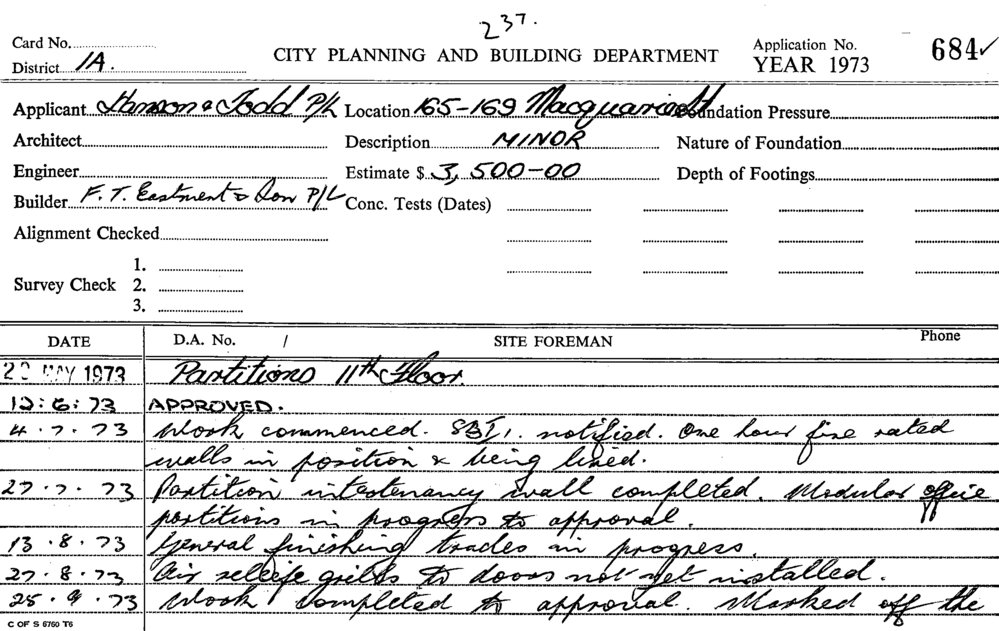 237.
Card No.
District 1A.
CITY PLANNING AND BUILDING DEPARTMENT
Application No. 684 ✓
YEAR 1973
Applicant Hanson & Todd P/L Location 165-169 Macquarie St Foundation Pressure
Architect Description MINOR Nature of Foundation
Engineer Estimate $ 3,500-00 Depth of Footings
Builder F. T. Eastment & Son P/L Conc. Tests (Dates)
Alignment Checked
Survey Check 1.
2.
3.
DATE D.A. No. / SITE FOREMAN Phone
MAY 1973 Partitions 11th Floor.
12:6:73 APPROVED.
4.7.73 Work commenced. notified. One hour fire rated
walls in position & being lined.
27.7.73 Partition intertenancy wall completed. Modular office
partitions in progress to approval.
13.8.73 General finishing trades in progress.
27.8.73 Air releife grills to doors not yet installed.
25.9.73 Work completed to approval. Marked off the
C OF S 6760 T6